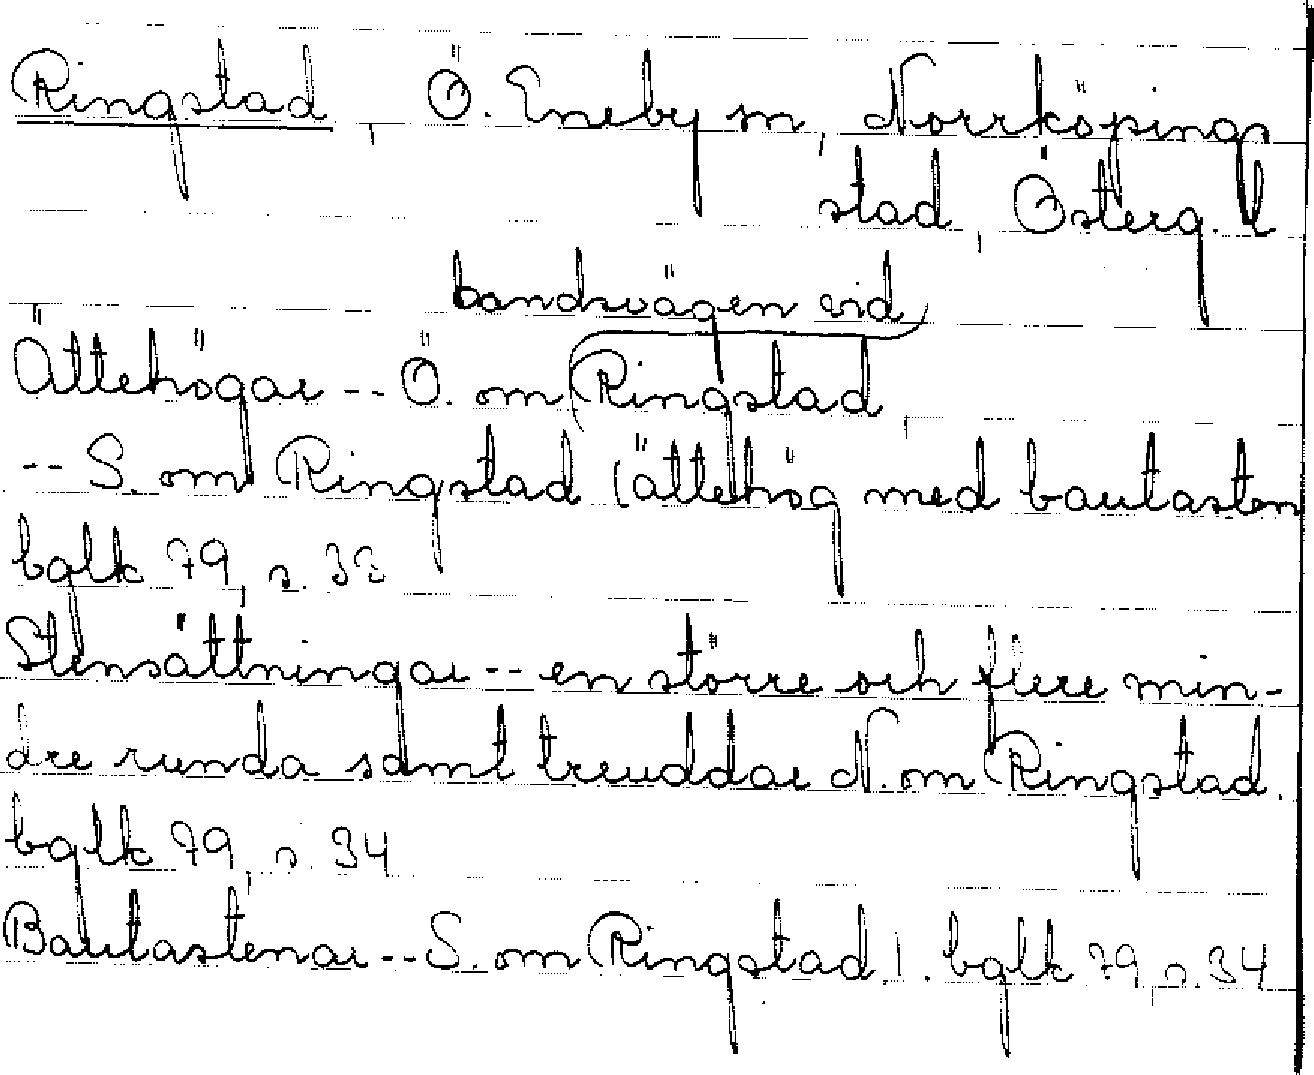 Ringstad, Ö. Eneby sn, Norrköpings
stad, Österg. l
landsvägen vid
Ättehögar -- Ö. om Ringstad,
-- S. om Ringstad (ättehög med bautasten
bglk 79, s. 33
Stensättningar -- en större och flere min-
dre runda samt treuddar N. om Ringstad.
bglk 79, s. 34
Bautastenar -- S. om Ringstad). bglk 79, s. 34